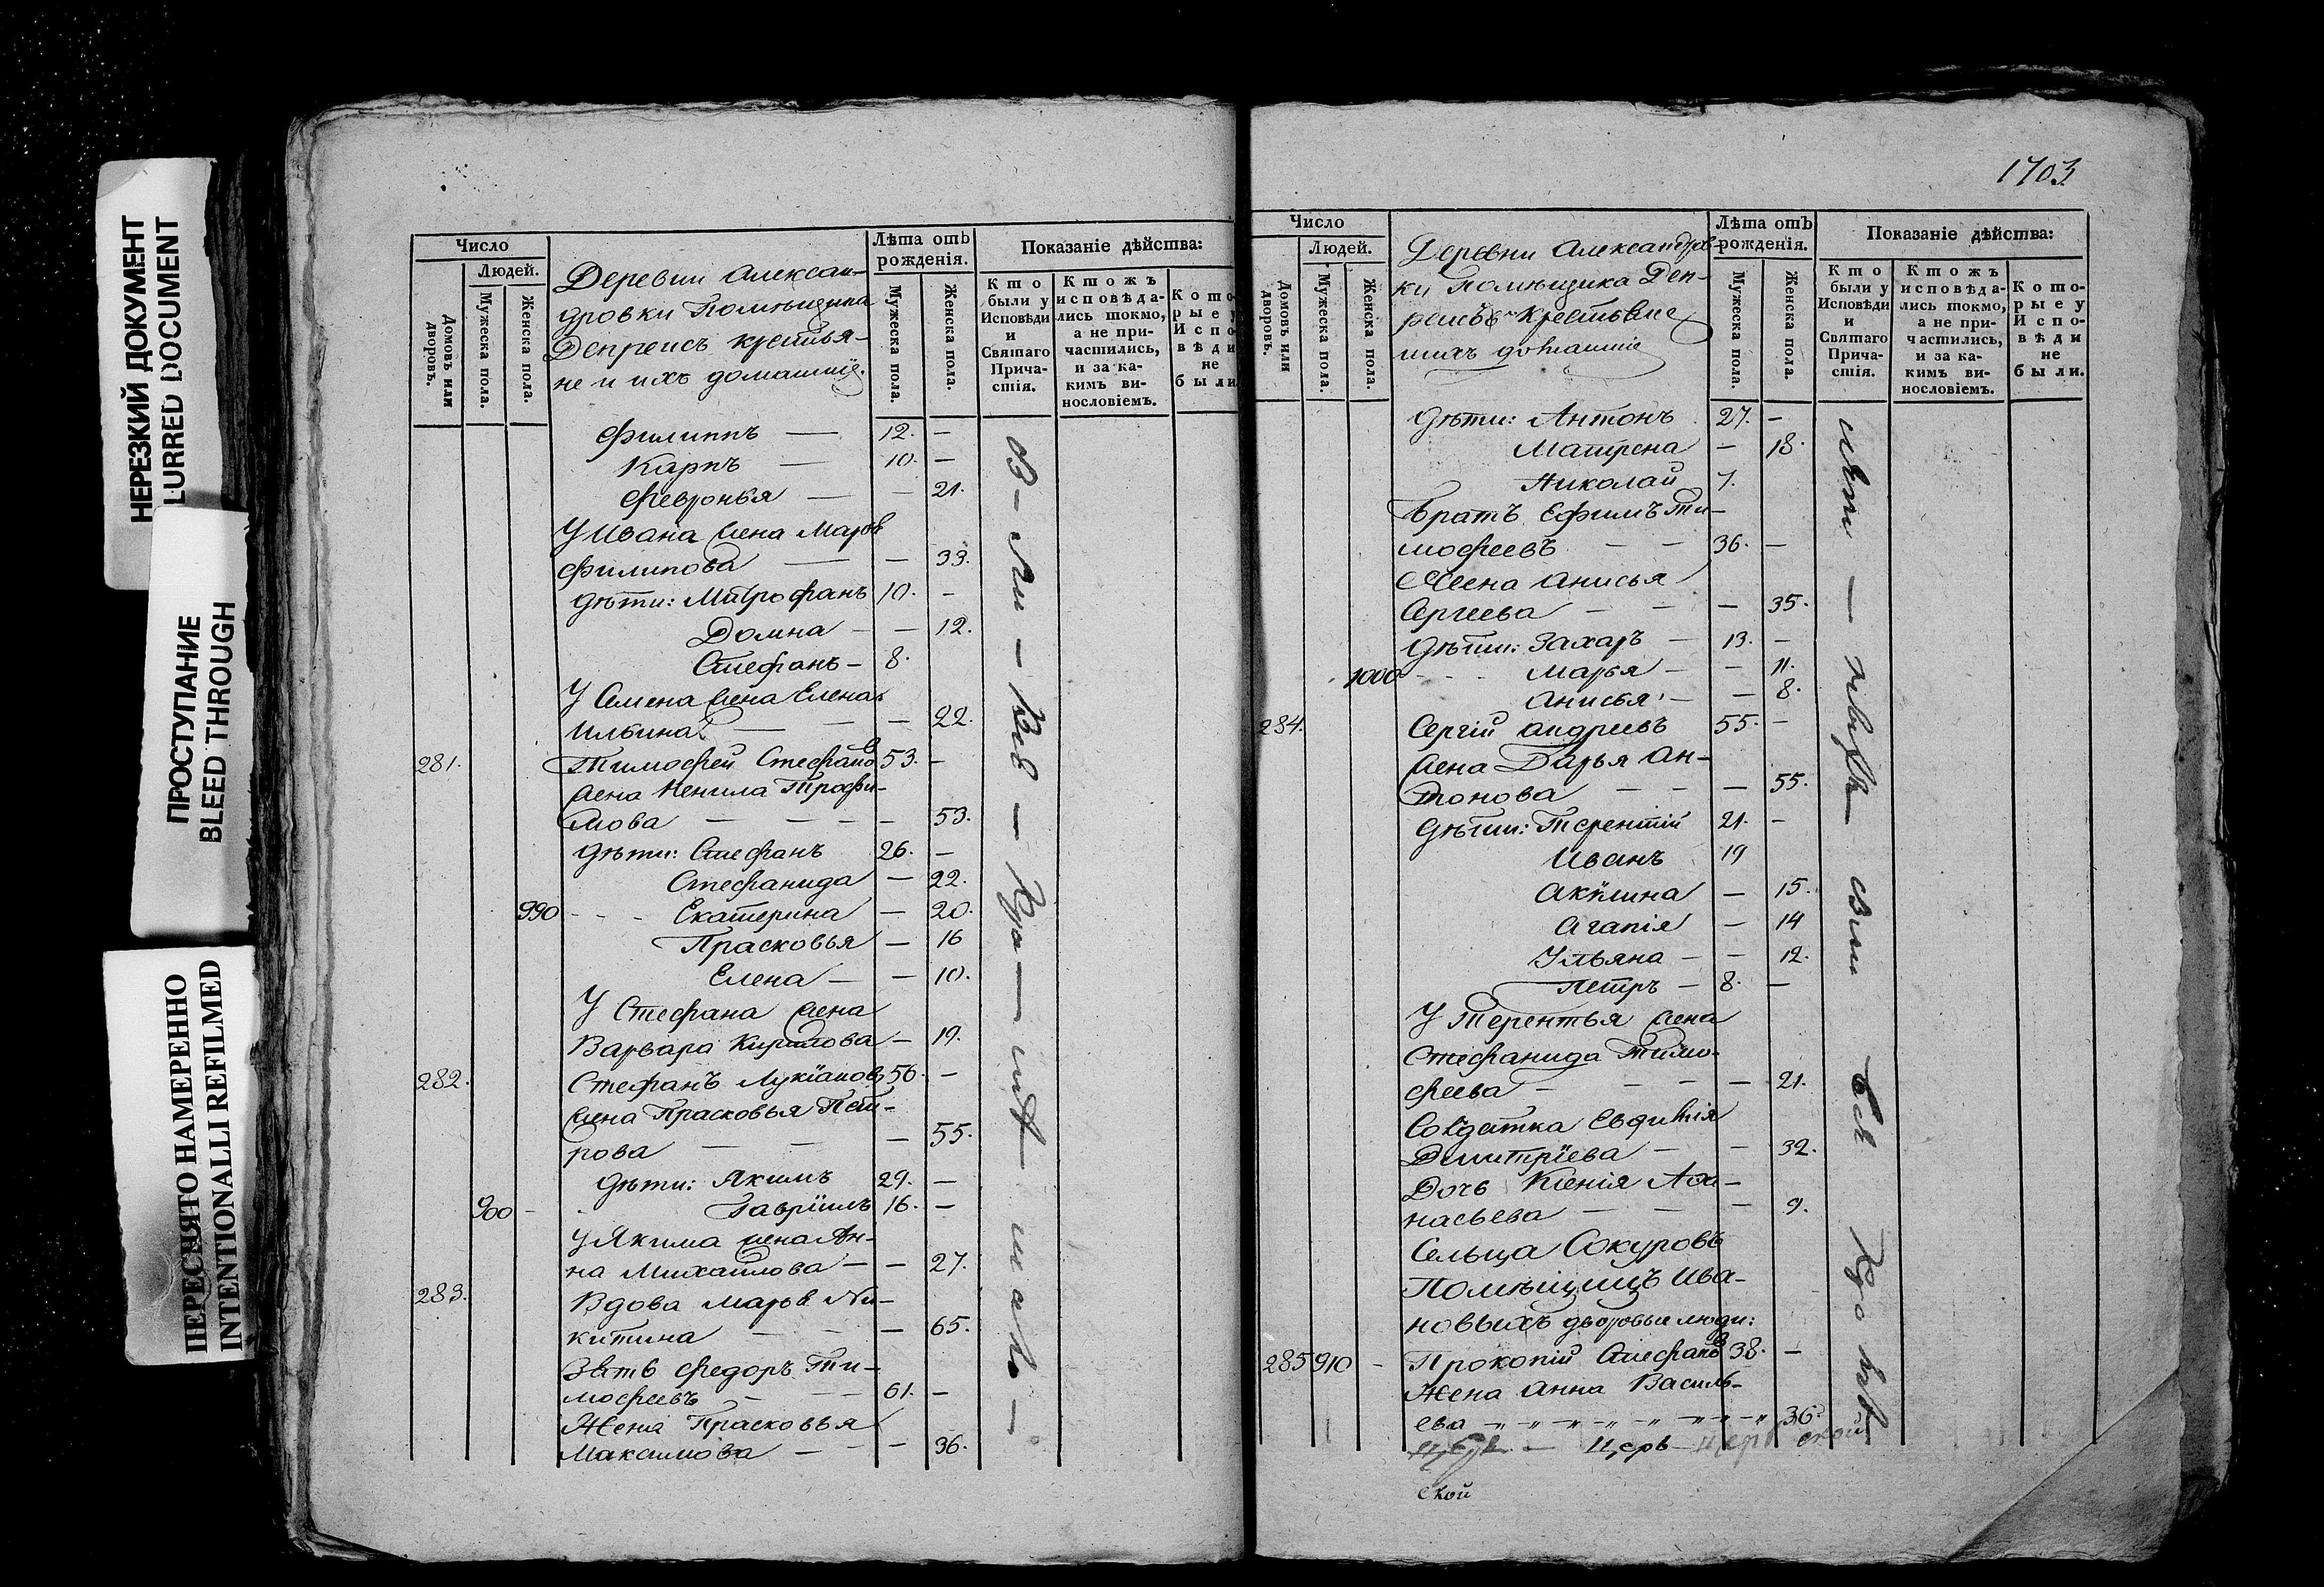 НЕРЕЗКИЙ ДОКУМЕНТ
LURRED DOCUMENT
ПРОСТУПАНИЕ
BLEED THROUGH
ПЕРЕСНЯТО НАМЕРЕННО
INTENTIONALLI REFILMED
Число
Людей.
Домовъ или дворовъ.
Мужеска пола.
Женска пола.
Деревни Алексан-
дровки Помѣщика
Депреисъ крестья-
не и ихъ домашніе.
Лѣта отъ рожденія.
Мужеска пола.
Женска пола.
Показаніе дѣйства:
Кто были у Исповѣди и Святаго Прича-стія.
Ктожъ исповѣда-лись токмо, а не при-частились, и за ка-кимъ ви-нословіемъ.
Кото-рые у Испо-вѣди не были
Филиппъ — 12. —
Карпъ — 10. —
Февронья — — 21.
У Ивана жена Марѳа
Филипова — — 33.
Дѣти: Митрофанъ 10. —
Домна — — 12.
Стефанъ — 8.
У Семена жена Елена
Ильина — — 22.
281. Тимофей Стефановъ 53. —
жена Ненила Трофи-
мова — — — — 53.
Дѣти: Стефанъ 26. —
Стефанида — 22.
990 - - - Екатерина — 20.
Прасковья — 16
Елена — — 10.
У Стефана жена
Варвара Кирилова — 19.
282. Стефанъ Лукіановъ 56. —
жена Прасковья Пет-
рова — — — 55.
Дѣти: Якимъ 29. —
900 - - Гавріилъ 16. —
У Якима жена Ан-
на Михайлова — — 27.
283. Вдова Марѳа Ни-
китина — — — 65.
Зять Федоръ Ти-
мофеевъ — — 61. —
Жена Прасковья
Максимова — — — 36.
1703
Число
Людей.
Домовъ или дворовъ.
Мужеска пола.
Женска пола.
Деревни Александров-
ки Помѣщика Деп-
реисъ крестьяне
и ихъ домашніе
Лѣта отъ рожденія.
Мужеска пола.
Женска пола.
Показаніе дѣйства:
Кто были у Исповѣди и Святаго Прича-стія.
Ктожъ исповѣда-лись токмо, а не при-частились, и за ка-кимъ ви-нословіемъ.
Кото-рые у Испо-вѣди не были.
Дѣти: Антонъ 27. —
Матрена — 18.
Николай 7.
Братъ Ефимъ Ти-
мофеевъ — — 36. —
Жена Анисья
Сергеева — — — 35.
Дѣти: Захаръ — 13. —
1000 - - - Марья — — 11.
Анисья — — 8.
284. Сергій Андреевъ 55. —
жена Дарья Ан-
тонова — — — 55.
Дѣти: Терентій 21. —
Иванъ 19
Акилина — 15.
Агапія — 14
Ульяна — — 12.
Петръ — 8. —
У Терентья жена
Стефанида Тимо-
феева — — — — 21.
Солдатка Евфимія
Димитріева — — 32.
Дочь Ксенія Афа-
насьева — — — 9.
Сельца Сокуровъ
Помѣщицъ Ива-
новыхъ дворовые люди:
285 910 - Прокопій Стефановъ 38. —
Жена Анна Василь-
ева — 36.
церв — церв
ской